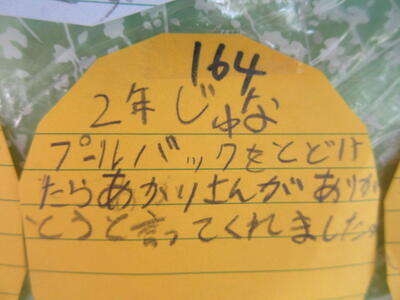 164
2年じゅな
プールバックをとどけ
たらあかりさんがありが
とうと言ってくれました。